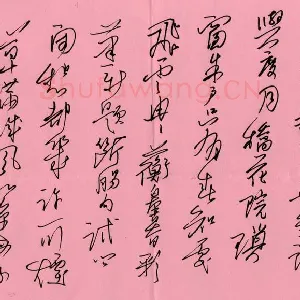 與度月橋花院瑣
窗朱户只有春知處
飛雲冉冉蘅皋暮彩
筆新題斷腸句試
問閑愁都幾許一川煙
草滿城風絮
shufawang.CN